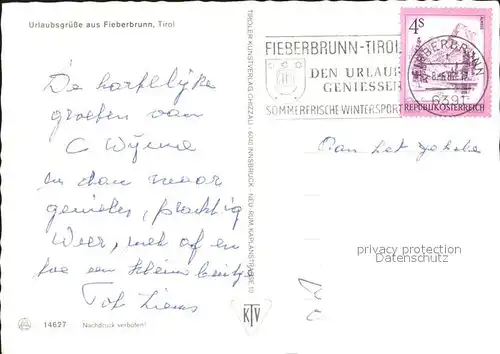 Urlaubsgrüße aus Fieberbrunn, Tirol
De hartelijke
groeten van
C Wijma
en dan maar
genieten, prachtig
Weer, met af en
toe een klein beetje
Tot Ziens
14627 Nachdruck verboten!
TIROLER KUNSTVERLAG CHIZZALI · 6040 INNSBRUCK · NEU-RUM, KAPLANSTRASSE 10
KTV
FIEBERBRUNN-TIROL
DEN URLAUB
GENIESSEN
SOMMERFRISCHE-WINTERSPORT
4S
REPUBLIK ÖSTERREICH
FIEBERBRUNN
6391
Aan het
privacy protection
Datenschutz